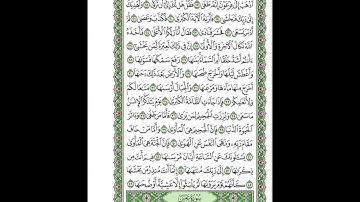 ٱذۡهَبۡ إِلَىٰ فِرۡعَوۡنَ إِنَّهُۥ طَغَىٰ ۝ فَقُلۡ هَل لَّكَ إِلَىٰٓ أَن تَزَكَّىٰ ۝ وَأَهۡدِيَكَ
إِلَىٰ رَبِّكَ فَتَخۡشَىٰ ۝ فَأَرَىٰهُ ٱلۡأٓيَةَ ٱلۡكُبۡرَىٰ ۝ فَكَذَّبَ وَعَصَىٰ ۝ ثُمَّ
أَدۡبَرَ يَسۡعَىٰ ۝ فَحَشَرَ فَنَادَىٰ ۝ فَقَالَ أَنَا۠ رَبُّكُمُ ٱلۡأَعۡلَىٰ ۝ فَأَخَذَهُ
ٱللَّهُ نَكَالَ ٱلۡأٓخِرَةِ وَٱلۡأُولَىٰٓ ۝ إِنَّ فِي ذَٰلِكَ لَعِبۡرَةٗ لِّمَن يَخۡشَىٰٓ ۝
ءَأَنتُمۡ أَشَدُّ خَلۡقًا أَمِ ٱلسَّمَآءُۚ بَنَىٰهَا ۝ رَفَعَ سَمۡكَهَا فَسَوَّىٰهَا ۝
وَأَغۡطَشَ لَيۡلَهَا وَأَخۡرَجَ ضُحَىٰهَا ۝ وَٱلۡأَرۡضَ بَعۡدَ ذَٰلِكَ دَحَىٰهَآ ۝
أَخۡرَجَ مِنۡهَا مَآءَهَا وَمَرۡعَىٰهَا ۝ وَٱلۡجِبَالَ أَرۡسَىٰهَا ۝ مَتَٰعٗا لَّكُمۡ
وَلِأَنۡعَٰمِكُمۡ ۝ فَإِذَا جَآءَتِ ٱلطَّآمَّةُ ٱلۡكُبۡرَىٰ ۝ يَوۡمَ يَتَذَكَّرُ ٱلۡإِنسَٰنُ
مَا سَعَىٰ ۝ وَبُرِّزَتِ ٱلۡجَحِيمُ لِمَن يَرَىٰ ۝ فَأَمَّا مَن طَغَىٰ ۝ وَءَاثَرَ
ٱلۡحَيَوٰةَ ٱلدُّنۡيَا ۝ فَإِنَّ ٱلۡجَحِيمَ هِيَ ٱلۡمَأۡوَىٰ ۝ وَأَمَّا مَنۡ خَافَ
مَقَامَ رَبِّهِۦ وَنَهَى ٱلنَّفۡسَ عَنِ ٱلۡهَوَىٰ ۝ فَإِنَّ ٱلۡجَنَّةَ هِيَ ٱلۡمَأۡوَىٰ ۝
يَسۡـَٔلُونَكَ عَنِ ٱلسَّاعَةِ أَيَّانَ مُرۡسَىٰهَا ۝ فِيمَ أَنتَ مِن
ذِكۡرَىٰهَآ ۝ إِلَىٰ رَبِّكَ مُنتَهَىٰهَآ ۝ إِنَّمَآ أَنتَ مُنذِرُ مَن يَخۡشَىٰهَا ۝
كَأَنَّهُمۡ يَوۡمَ يَرَوۡنَهَا لَمۡ يَلۡبَثُوٓاْ إِلَّا عَشِيَّةً أَوۡ ضُحَىٰهَا ۝
سُورَةُ عَبَسَ